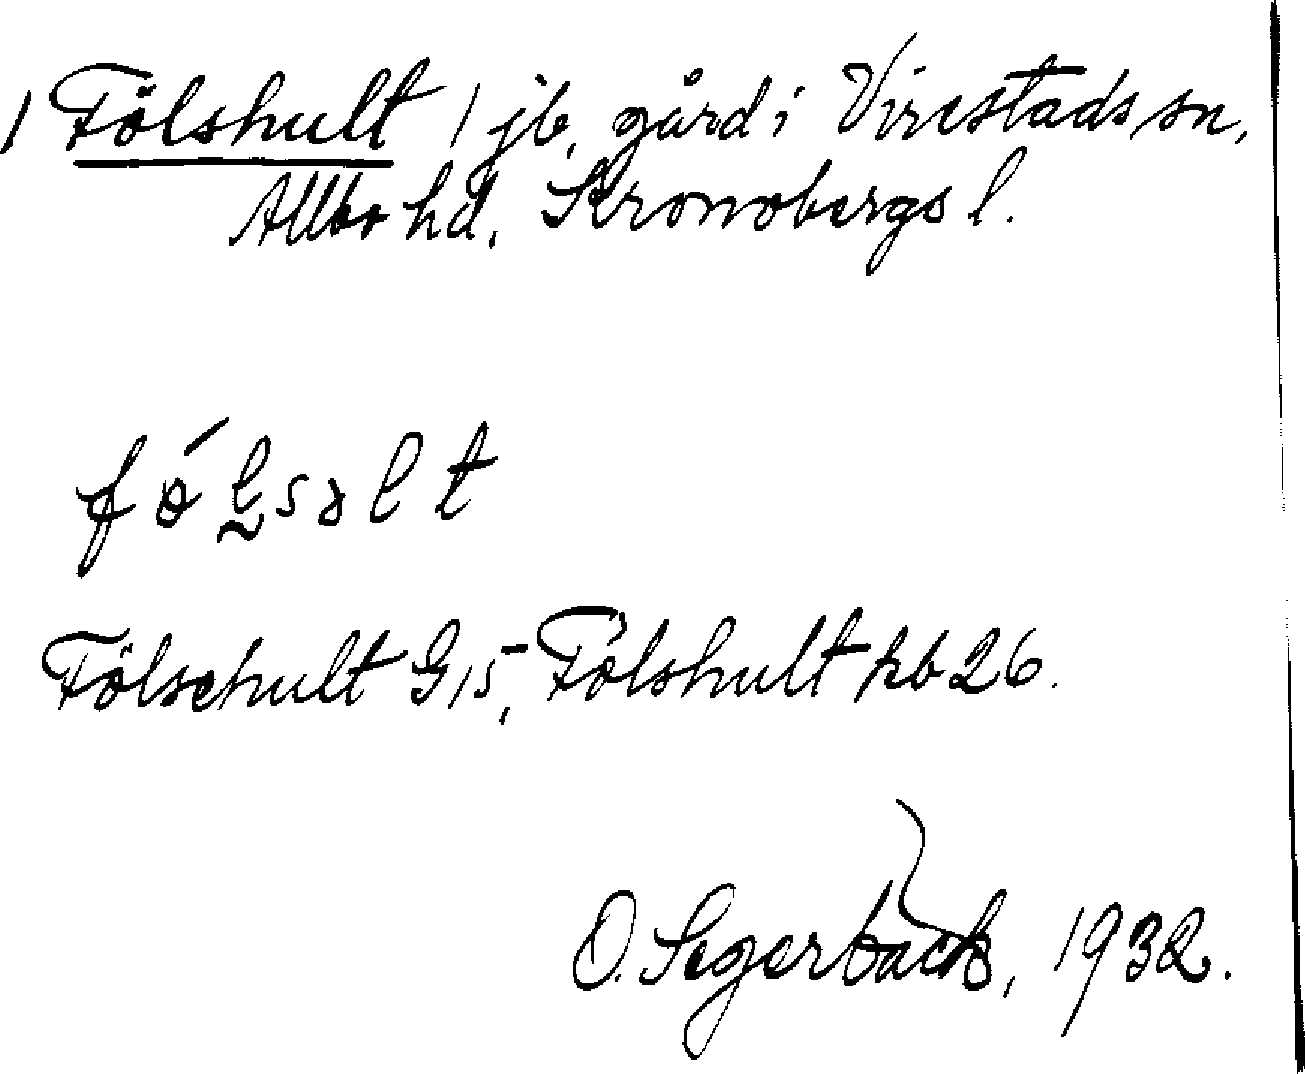 / Fölshult / jb. gård i Virestads sn,
Allbo hd, Kronobergs l.
fǿl̰sɔlt
Fölsehult G15, Fölshult kb 26.
O. Segerbäck, 1932.